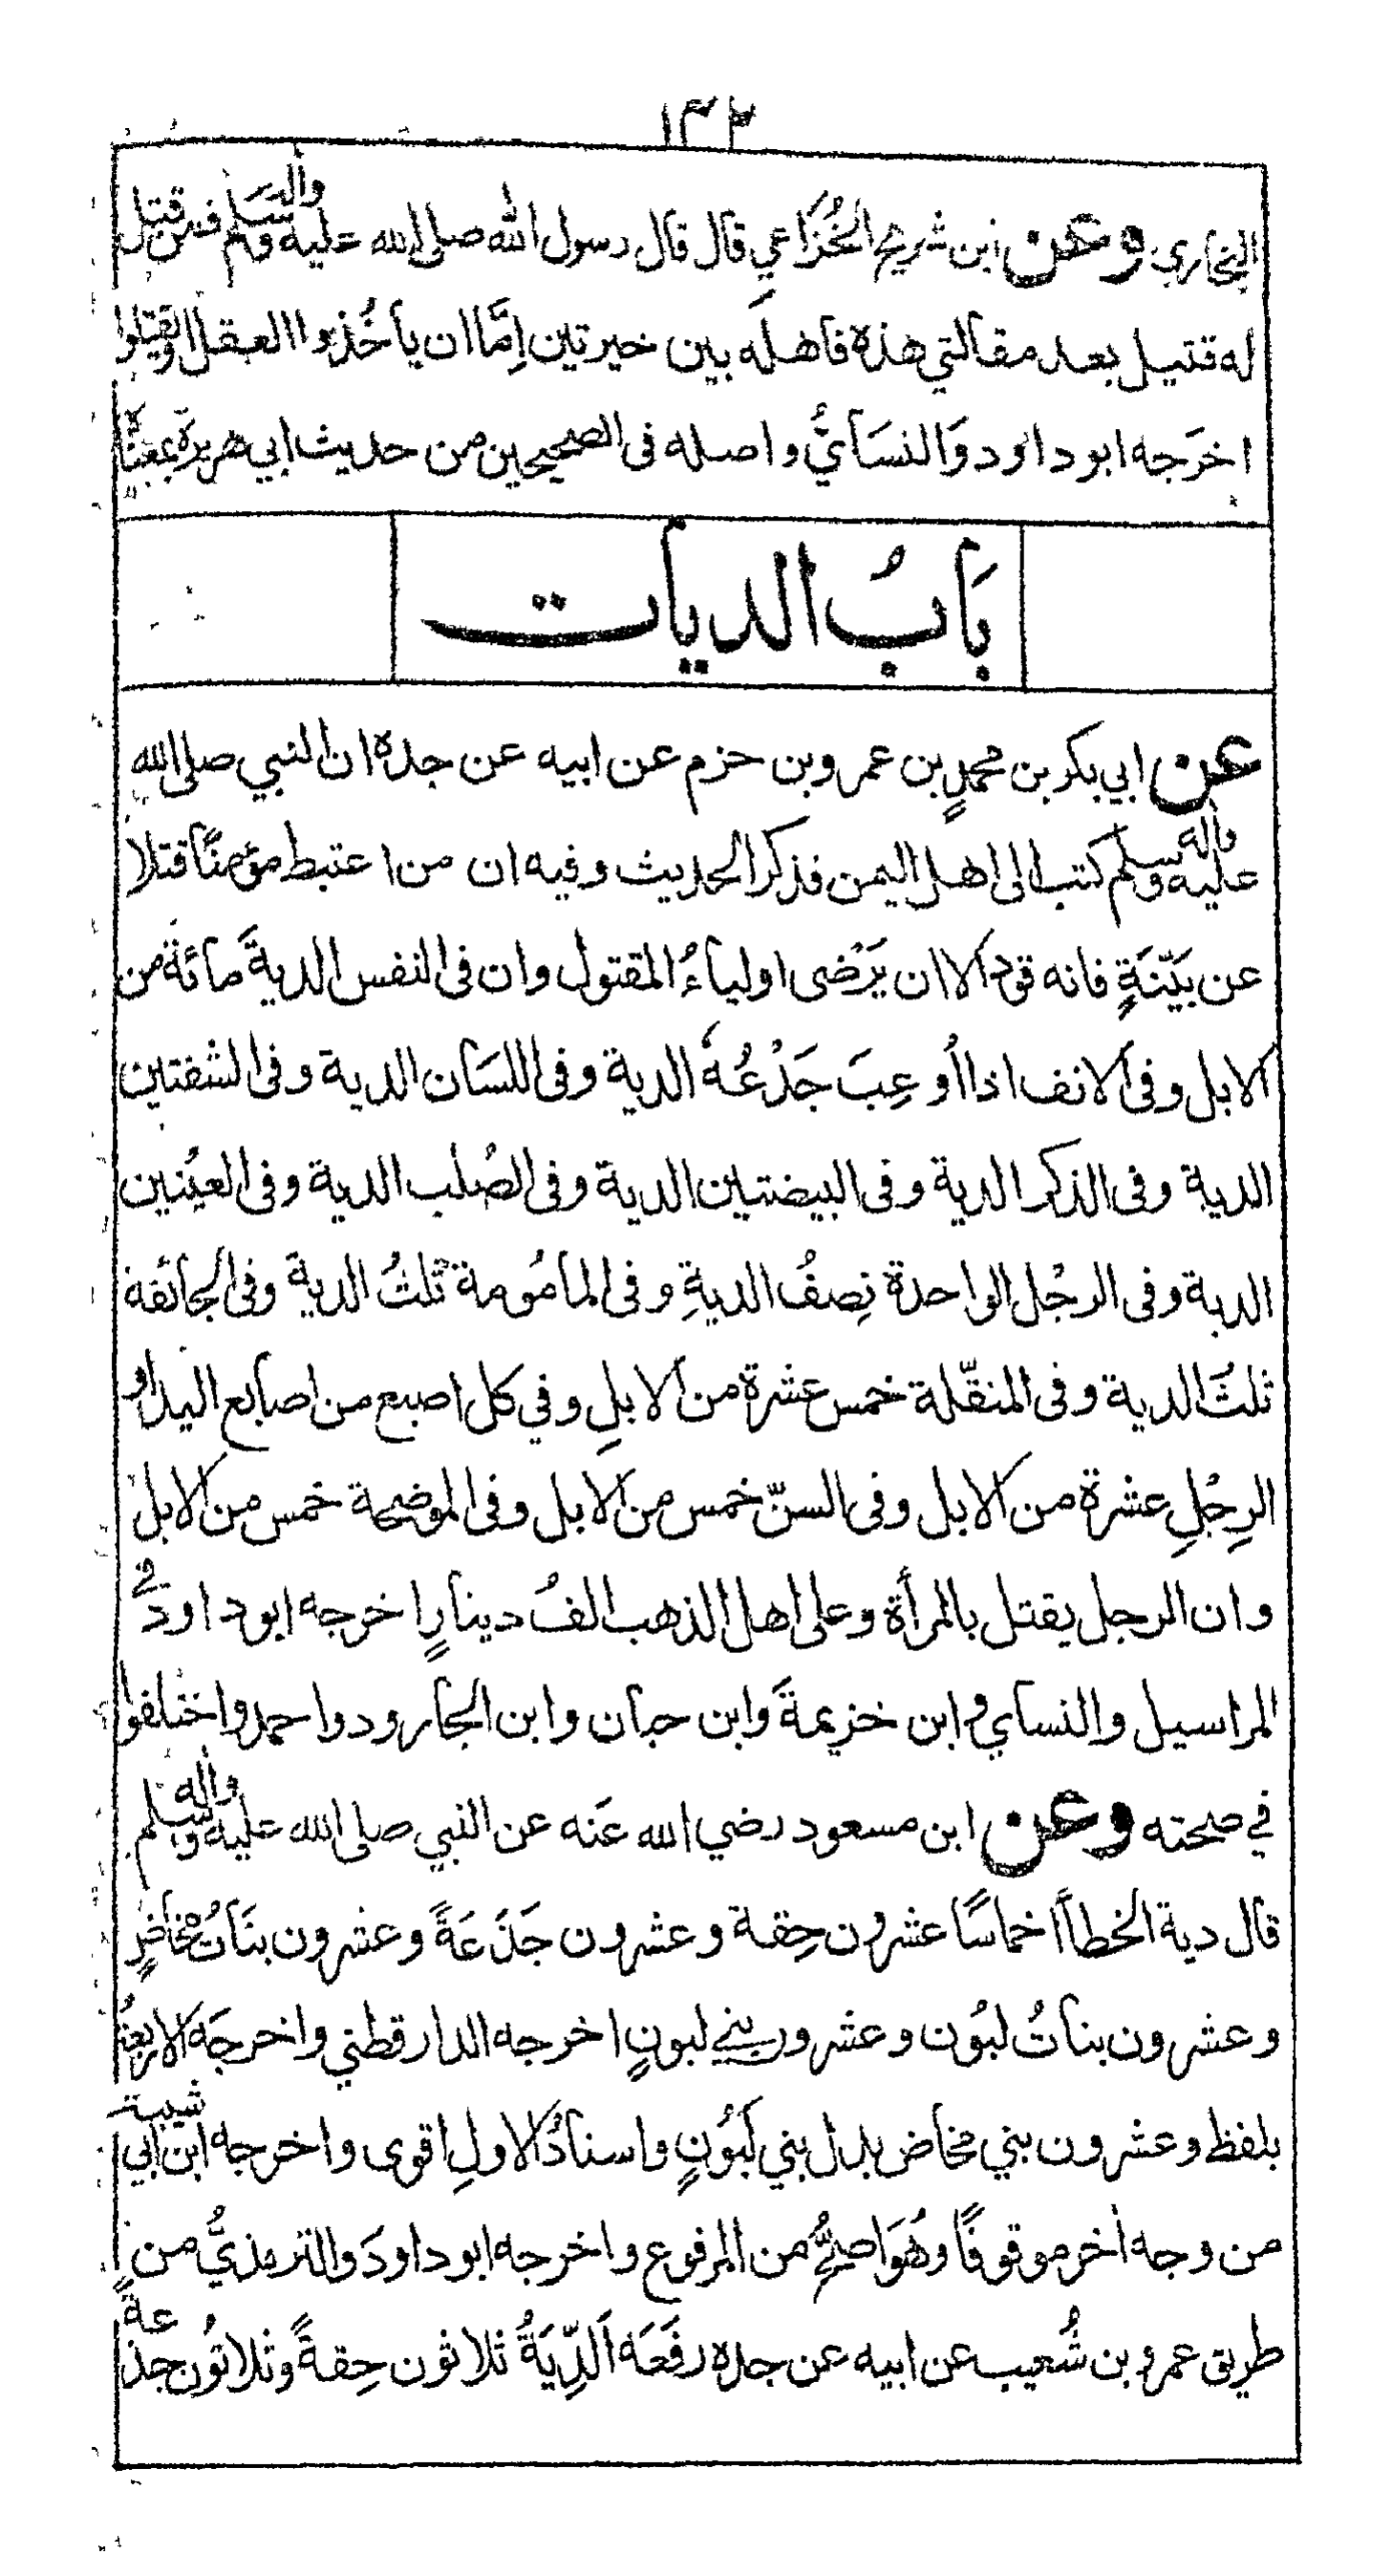 ١٣٢
البخاري وعن ابن شريح الخُزَاعي قال قال رسول الله صلى الله عليه واله وسلم فمن قتل
له قتيل بعد مقالتي هذه فاهله بين خيرتين اِمَّا ان يأخُذوا العقل او يقتلوا
اخرَجه ابو داود وَالنسَائيُّ واصله فى الصحيحين من حديث ابي هريرة بمعناه
بَابُ الديات
عن ابي بكر بن محمدٍ بن عمرو بن حزم عن ابيه عن جده ان النبي صلى الله
عليه واله وسلم كتب الى اهل اليمن فذكر الحديث وفيه ان من اعتبط مؤمنًا قتلا
عن بَيّنَةٍ فانه قود الا ان يَرْضى اولياءُ المقتول وان فى النفس الديةَ مائة من
الابل وفى الانف اذا اُوعِبَ جَدْعُهٗ الدية وفى اللسَان الدية وفى الشفتين
الدية وفى الذكر الدية وفى البيضتين الدية وفى الصُلب الدية وفى العيْنين
الدية وفى الرجْل الواحدة نِصفُ الديةِ وفى المامُومة ثلثُ الديةَ وفى الجائفة
ثلثَ الدية وفى المنقّلة خمس عشرة من الابلِ وفي كل اصبع من اصابع اليد او
الرِجْلِ عشرة من الابل وفى السنّ خمس من الابل وفى الموضحة خمس من الابل
وان الرجل يقتل بالمرأة وعلى اهل الذهب الفُ دينارٍ اخرجه ابو داودَ في
المراسيل والنساي وابن خزيمةَ وابن حبان وابن الجارود واحمد واختلفوا
في صحته وعن ابن مسعود رضي الله عَنه عن النبي صلى الله عليه واله وسلم
قال دية الخطأ اخماسًا عشرون حِقة وعشرون جَذَعَةً وعشرون بنَاتُ مخَاضٍ
وعشرون بناتُ لبُون وعشرون بني لبونٍ اخرجه الدارقطني واخرجَه الاربعةُ
بلفظ وعشرون بني مخاض بدل بني لَبُونٍ واسنادُ الاولِ اقوى واخرجه ابن ابي شيبة
من وجه اٰخر موقوفًا وهُوَ اصحُّ من المرفوع واخرجه ابو داودَ والترمذيُّ من
طريق عمرو بن شُعيب عن ابيه عن جده رفَعَه اَلدِّيَةُ ثلاثون حِقةً وثلاثوُن جذعةً